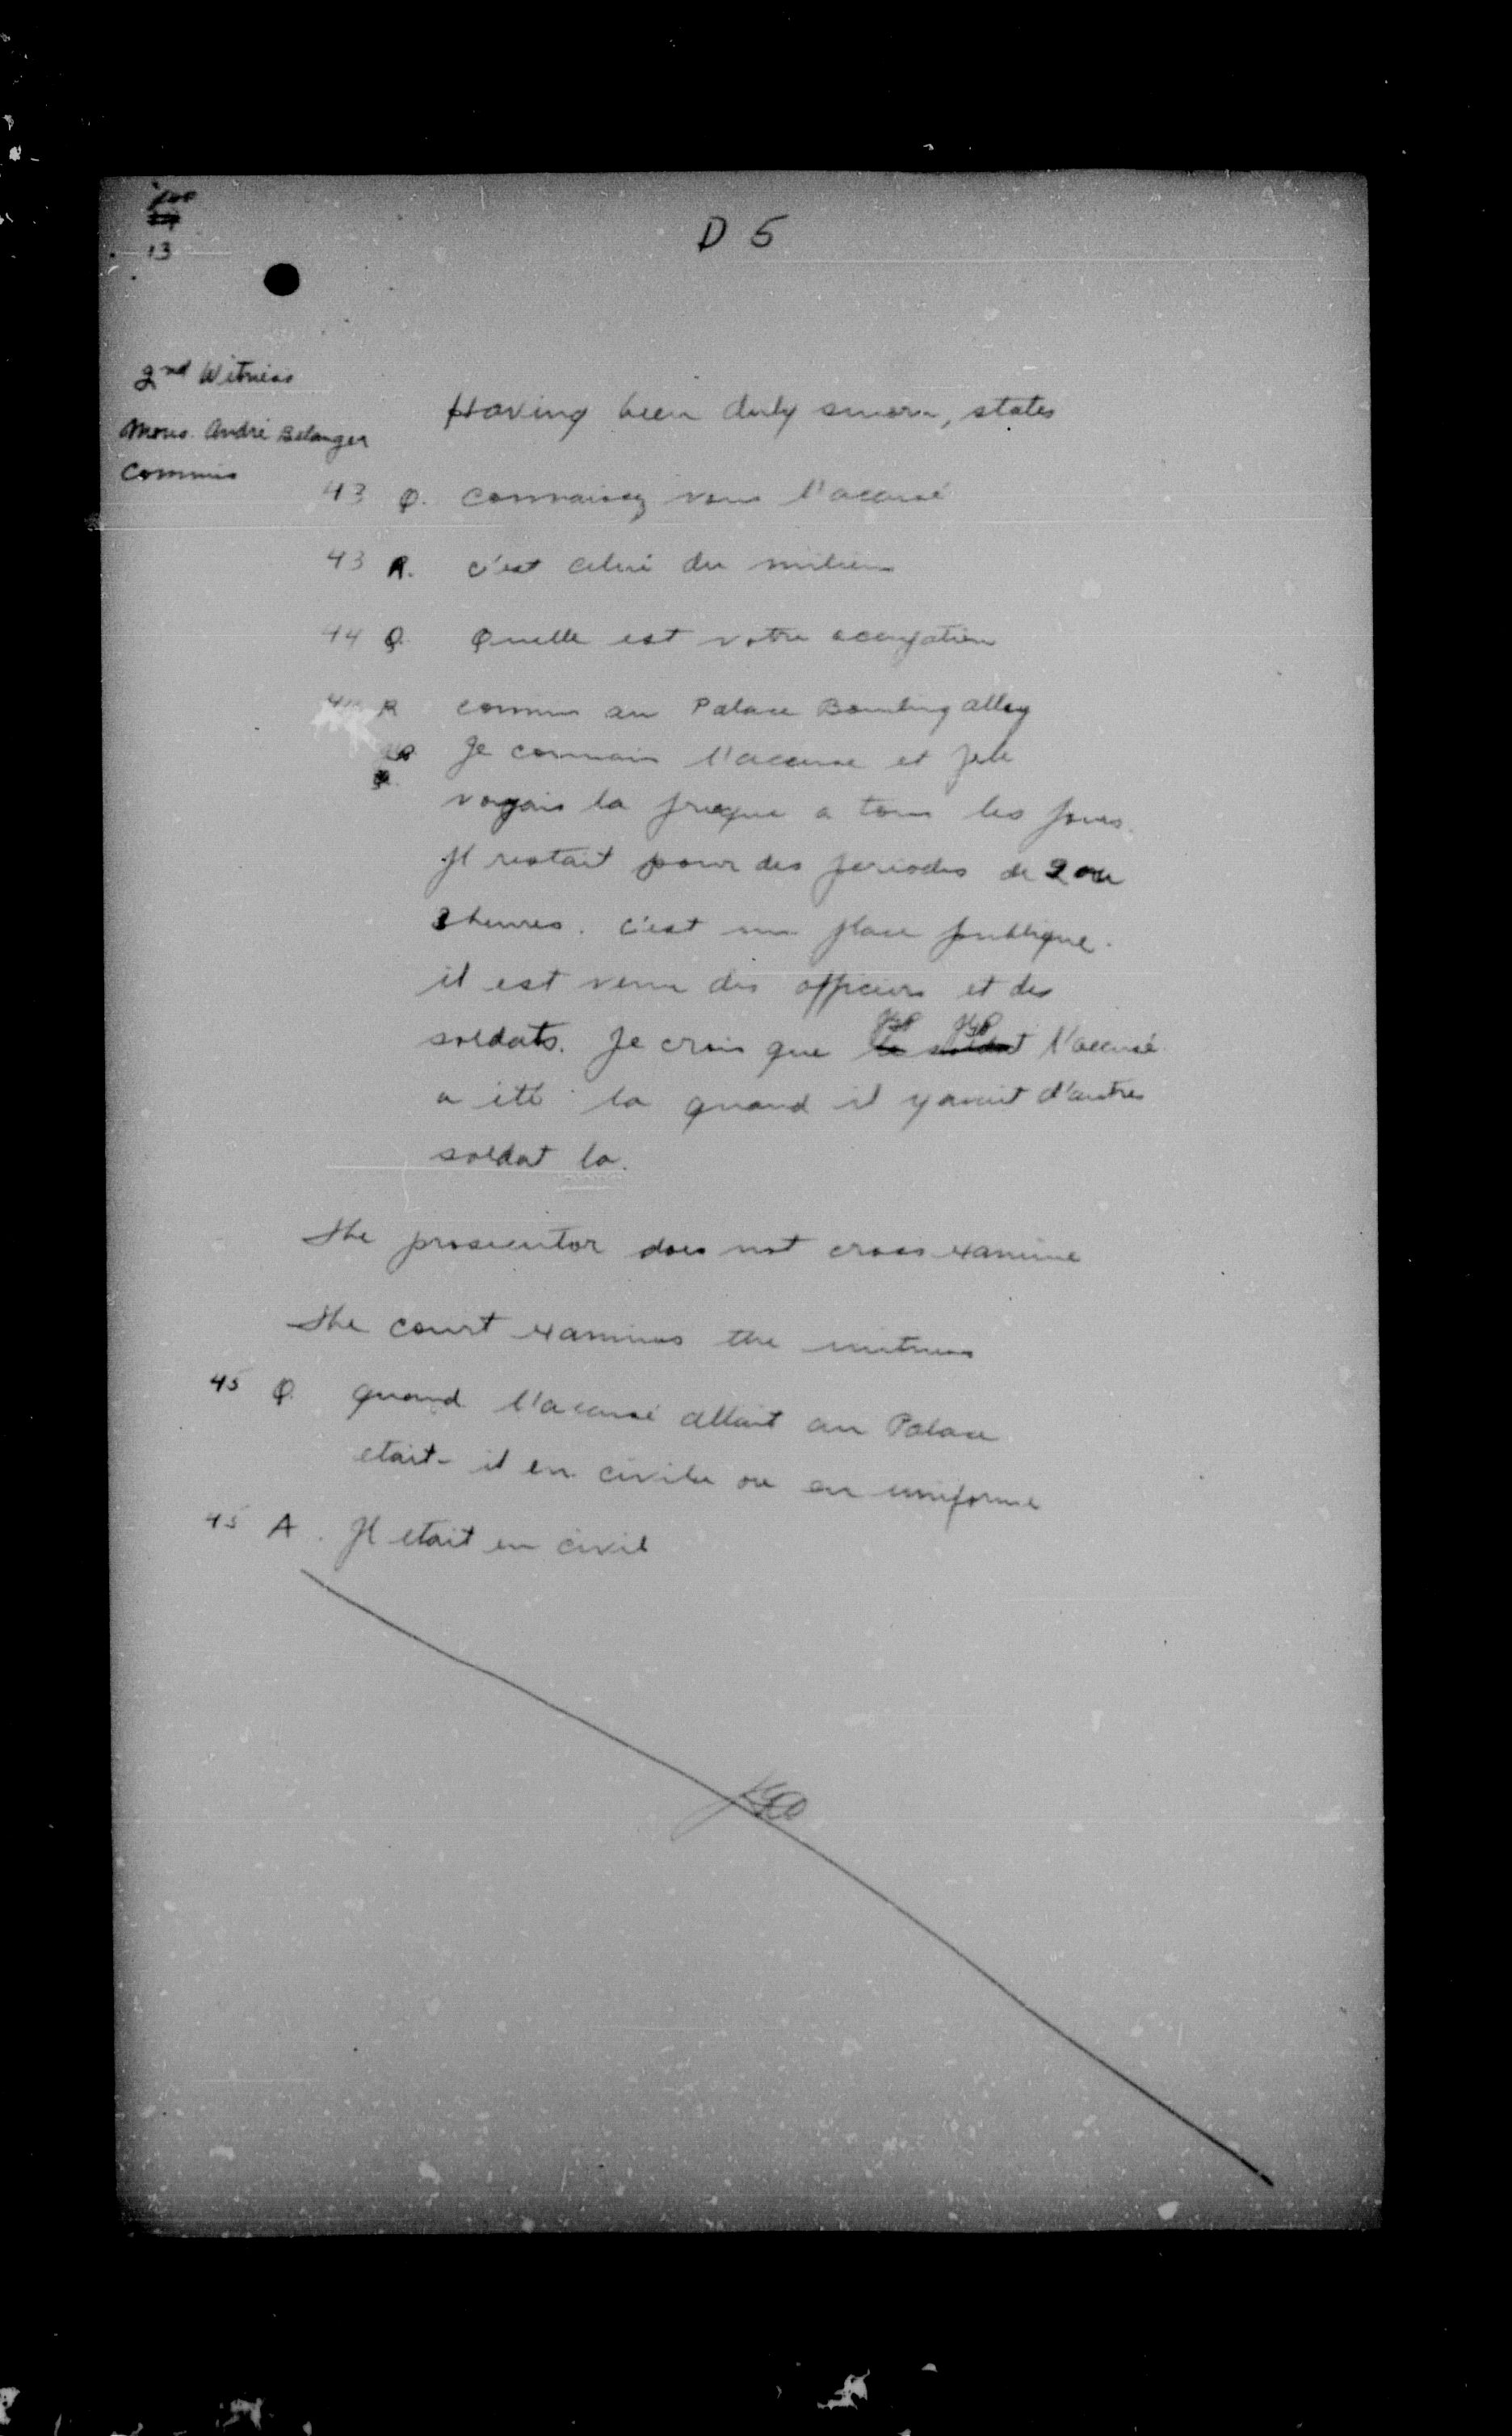 13
D 5
2nd Witness
Mons. André Belanger
Commis
Having been duly sworn, states
43 Q. Connaissez vous l'accusé
43 R. c'est celui du milieu
44 Q. Quelle est votre occupation
R commis au Palace Bowling alley
Je connais l'accuse et je le
voyais la presque a tous les jours.
Il restait pour des periodes de 2 ou
3 heures. c'est une place publique.
il est venu des officiers et des
soldats. Je crois que le soldat l'accusé
a été la quand il y avait d'autres
soldat la.
The prosecutor does not cross-examine
The court examines the witness
45 Q. quand l'accusé allait au Palace
etait-il en civile ou en uniforme
45 A. Il etait en civil